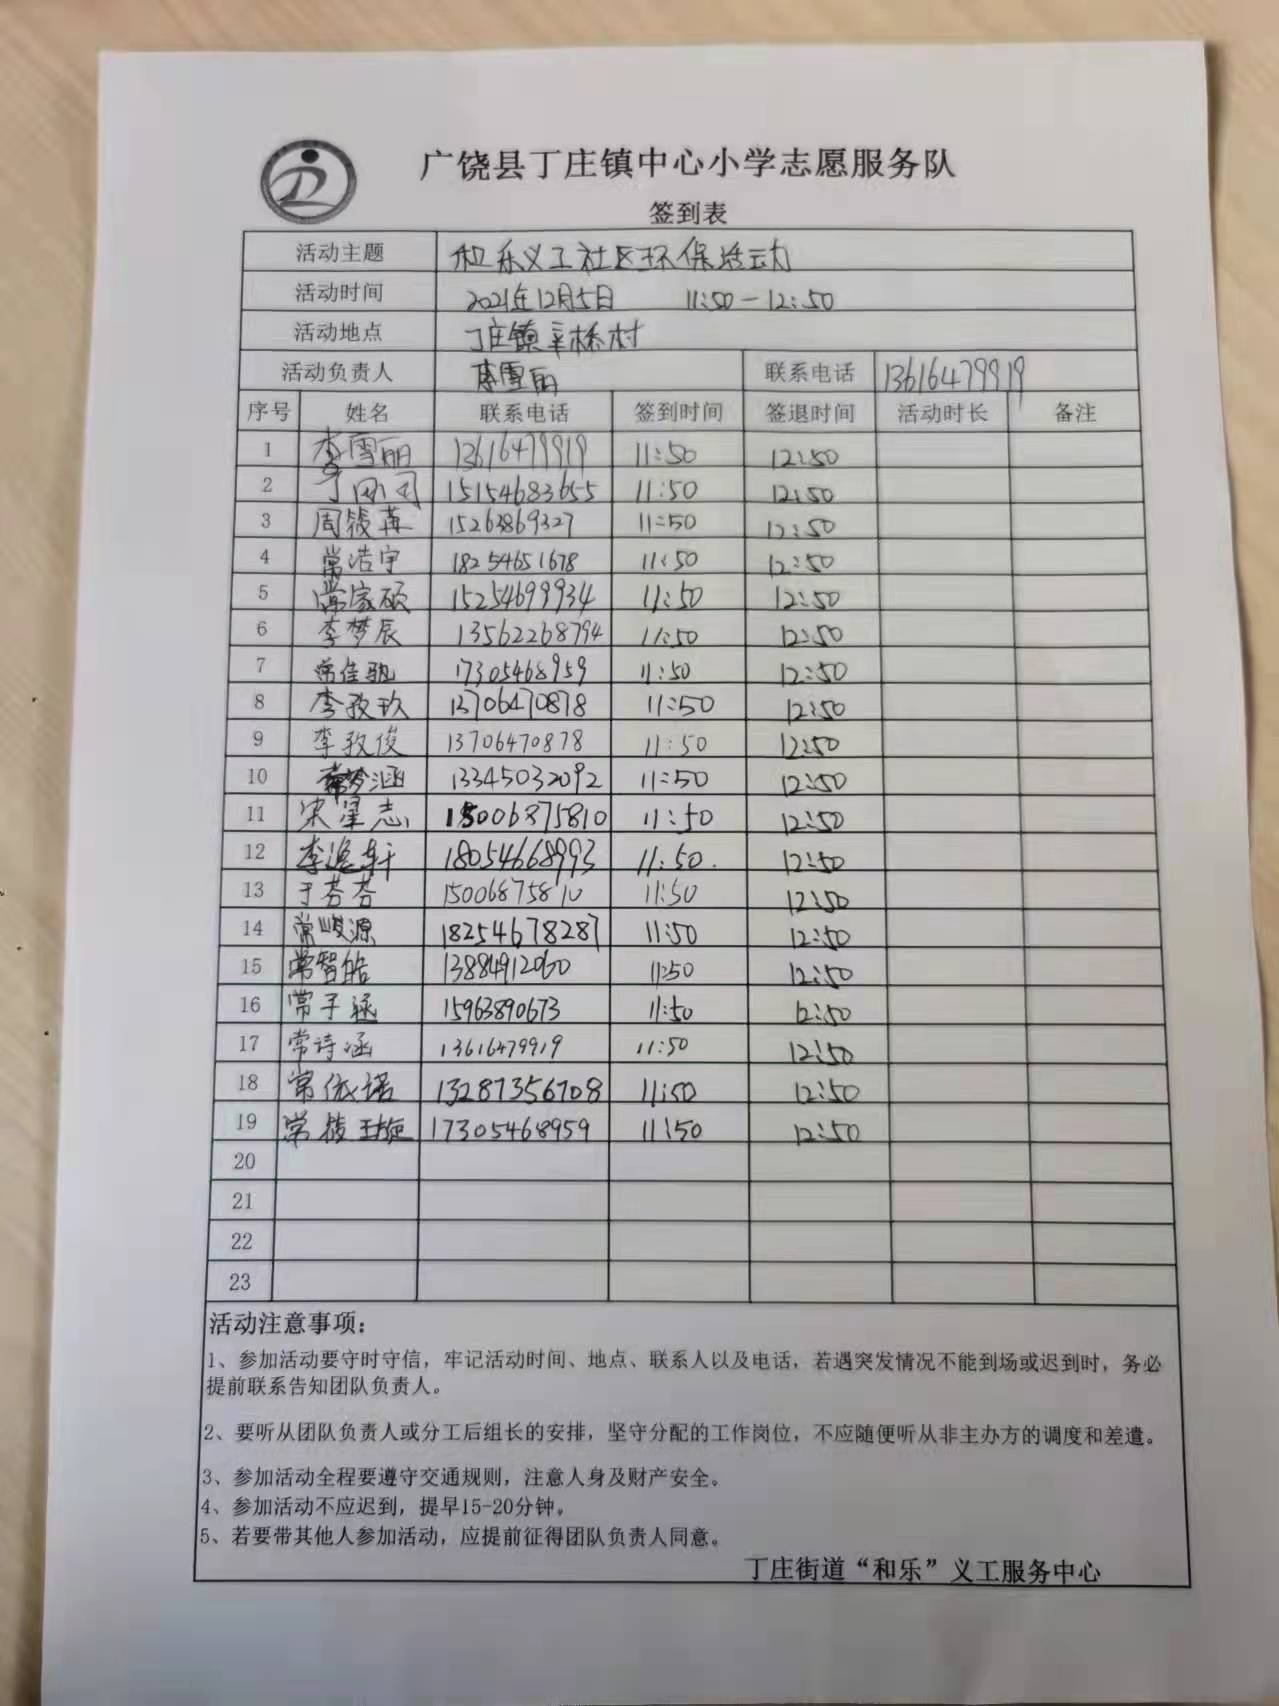 广饶县丁庄镇中心小学志愿服务队
签到表
活动主题 和乐义工社区环保活动
活动时间 2021年12月5日 11:50-12:50
活动地点 丁庄镇辛桥村
活动负责人 李雪丽 联系电话 13616479919
序号 姓名 联系电话 签到时间 签退时间 活动时长 备注
1 李雪丽 13616479919 11:50 12:50
2 15154683655 11:50 12:50
3 周筱苒 15263869327 11:50 12:50
4 常浩宇 18254651678 11:50 12:50
5 常家硕 15254699934 11:50 12:50
6 李梦辰 13562268794 11:50 12:50
7 常佳凯 17305468959 11:50 12:50
8 李孜玖 13706470878 11:50 12:50
9 李孜俊 13706470878 11:50 12:50
10 常梦涵 13345032092 11:50 12:50
11 宋星志 15006875810 11:50 12:50
12 李逸轩 18054668993 11:50. 12:50
13 于芬芬 15006875810 11:50 12:50
14 常峻源 18254678287 11:50 12:50
15 常智皓 13884912060 11:50 12:50
16 常子涵 15963890673 11:50 12:50
17 常诗涵 13616479919 11:50 12:50
18 常依诺 13287356708 11:50 12:50
19 常筱璇 17305468959 11:50 12:50
20
21
22
23
活动注意事项：
1、参加活动要守时守信，牢记活动时间、地点、联系人以及电话，若遇突发情况不能到场或迟到时，务必
提前联系告知团队负责人。
2、要听从团队负责人或分工后组长的安排，坚守分配的工作岗位，不应随便听从非主办方的调度和差遣。
3、参加活动全程要遵守交通规则，注意人身及财产安全。
4、参加活动不应迟到，提早15-20分钟。
5、若要带其他人参加活动，应提前征得团队负责人同意。
丁庄街道“和乐”义工服务中心